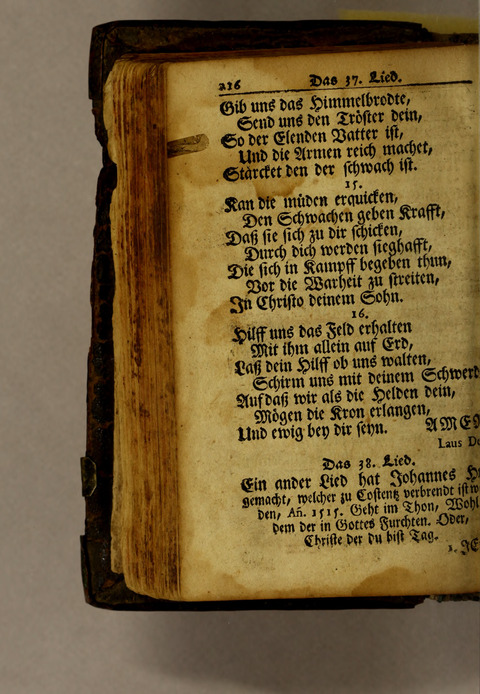 216 Das 37. Lied.
Gib uns das Himmelbrodte,
Send uns den Tröster dein,
So der Elenden Vatter ist,
Und die Armen reich machet,
Stärcket den der schwach ist.
15.
Kan die müden erquicken,
Den Schwachen geben Krafft,
Daß sie sich zu dir schicken,
Durch dich werden sieghafft,
Die sich in Kampff begeben thun,
Vor die Warheit zu streiten,
In Christo deinem Sohn.
16.
Hilff uns das Feld erhalten
Mit ihm allein auf Erd,
Laß dein Hilff ob uns walten,
Schirm uns mit deinem Schwerd
Auf daß wir als die Helden dein,
Mögen die Kron erlangen,
Und ewig bey dir seyn. AME
Laus De
Das 38. Lied.
Ein ander Lied hat Johannes H
gemacht, welcher zu Costentz verbrendt ist
den, Añ. 1515. Geht im Thon, Wohl
dem der in Gottes Furchten. Oder,
Christe der du bist Tag.
1. JE